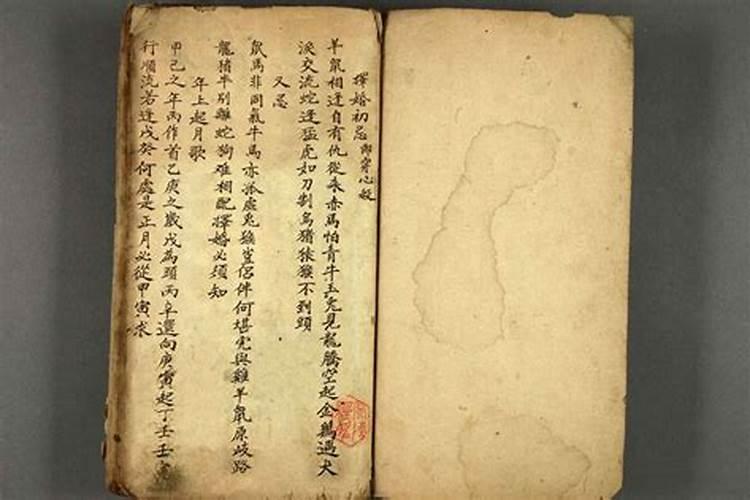 擇婚初忌即穿心殺
羊鼠相逢自有仇從來赤馬怕青牛玉兎見龍騰空起金鷄遇犬
淚交流蛇逢猛虎如刀割烏猪猿猴不到頭
又忌
鼠馬非同氣牛馬亦孤虛兎猴豈侶伴何堪虎與雞羊鼠原歧路
龍猪平別離蛇狗难相配擇婚必須知
年上起月歌
甲己之年丙作首乙庚之歲戊為頭丙辛還向庚寅起丁壬壬寅
行順流若逢戊癸何處是正月必從甲寅求